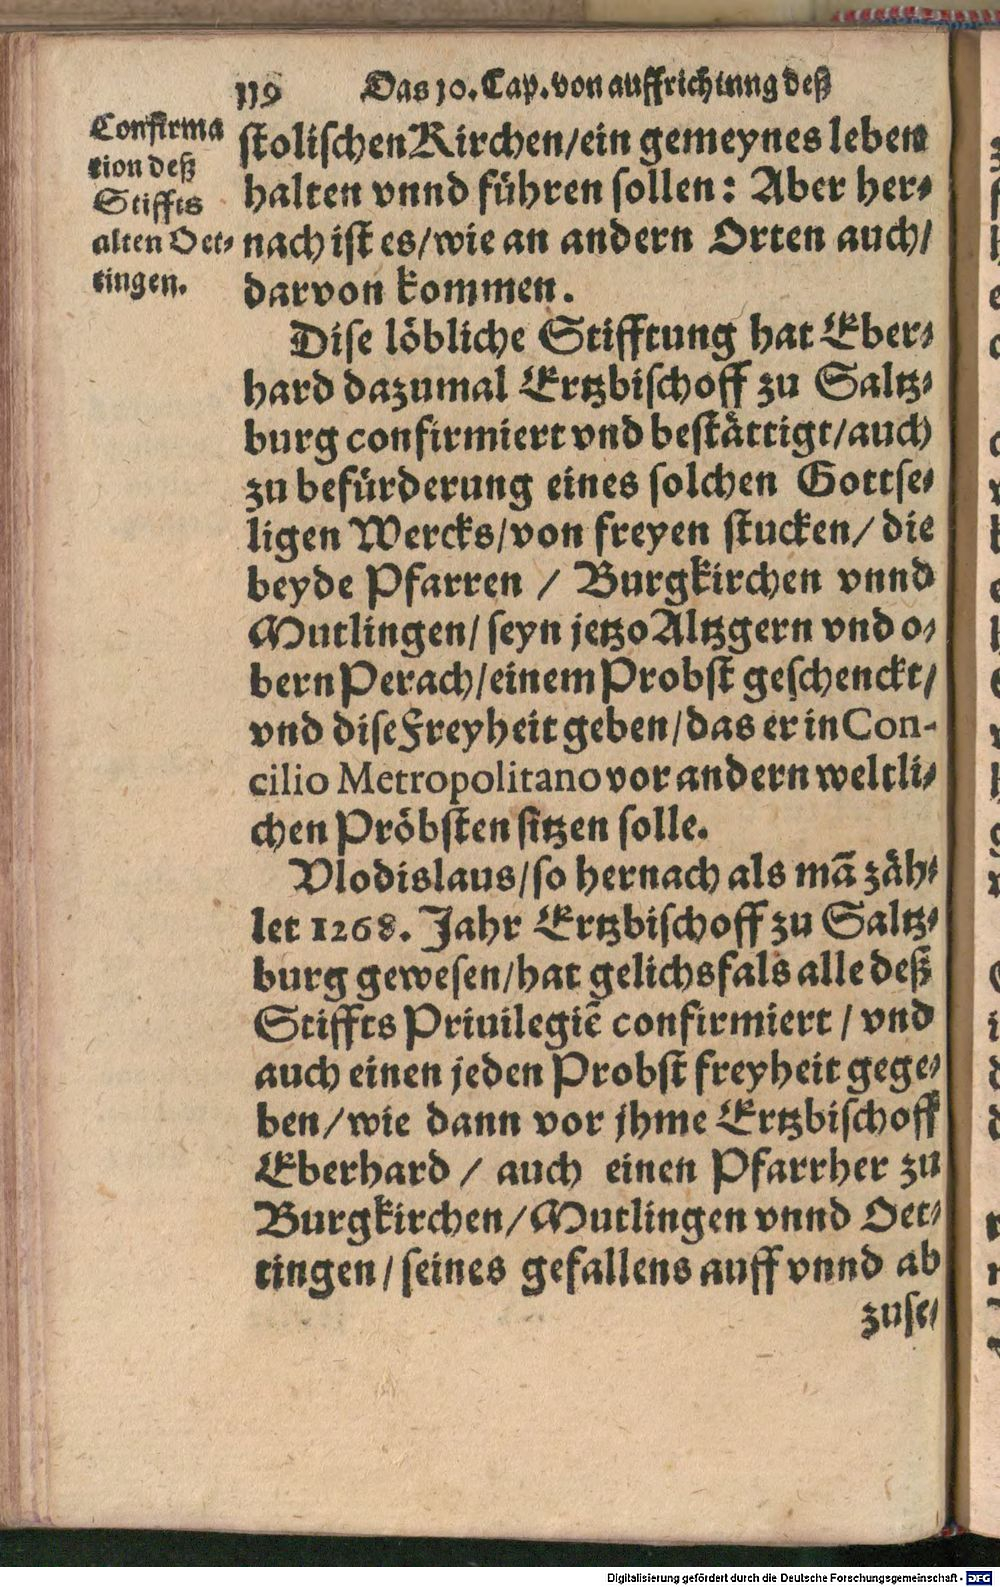 119 Das 10. Cap. von auffrichtung deß
Confirma
tion deß
Stiffts
alten Oet⸗
tingen.
stolischen Kirchen/ein gemeynes leben
halten vnnd führen sollen: Aber her⸗
nach ist es/wie an andern Orten auch/
darvon kommen.
Dise löbliche Stifftung hat Eber⸗
hard dazumal Ertzbischoff zu Saltz⸗
burg confirmiert vnd bestättigt/auch
zu befürderung eines solchen Gottse⸗
ligen Wercks/von freyen stucken/ die
beyde Pfarren / Burgkirchen vnnd
Mutlingen/ seyn jetzo Altzgern vnd o⸗
bern Perach/einem Probst geschenckt/
vnd dise Freyheit geben/das er in Con-
cilio Metropolitano vor andern weltli⸗
chen Pröbsten sitzen solle.
Vlodislaus/so hernach als mã zäh⸗
let 1268. Jahr Ertzbischoff zu Saltz⸗
burg gewesen/hat gelichsfals alle deß
Stiffts Priuilegiẽ confirmiert / vnd
auch einen jeden Probst freyheit gege⸗
ben/wie dann vor jhme Ertzbischoff
Eberhard / auch einen Pfarrher zu
Burgkirchen/Mutlingen vnnd Oet⸗
tingen/seines gefallens auff vnnd ab
zuse⸗
Digitalisierung gefördert durch die Deutsche Forschungsgemeinschaft - DFG